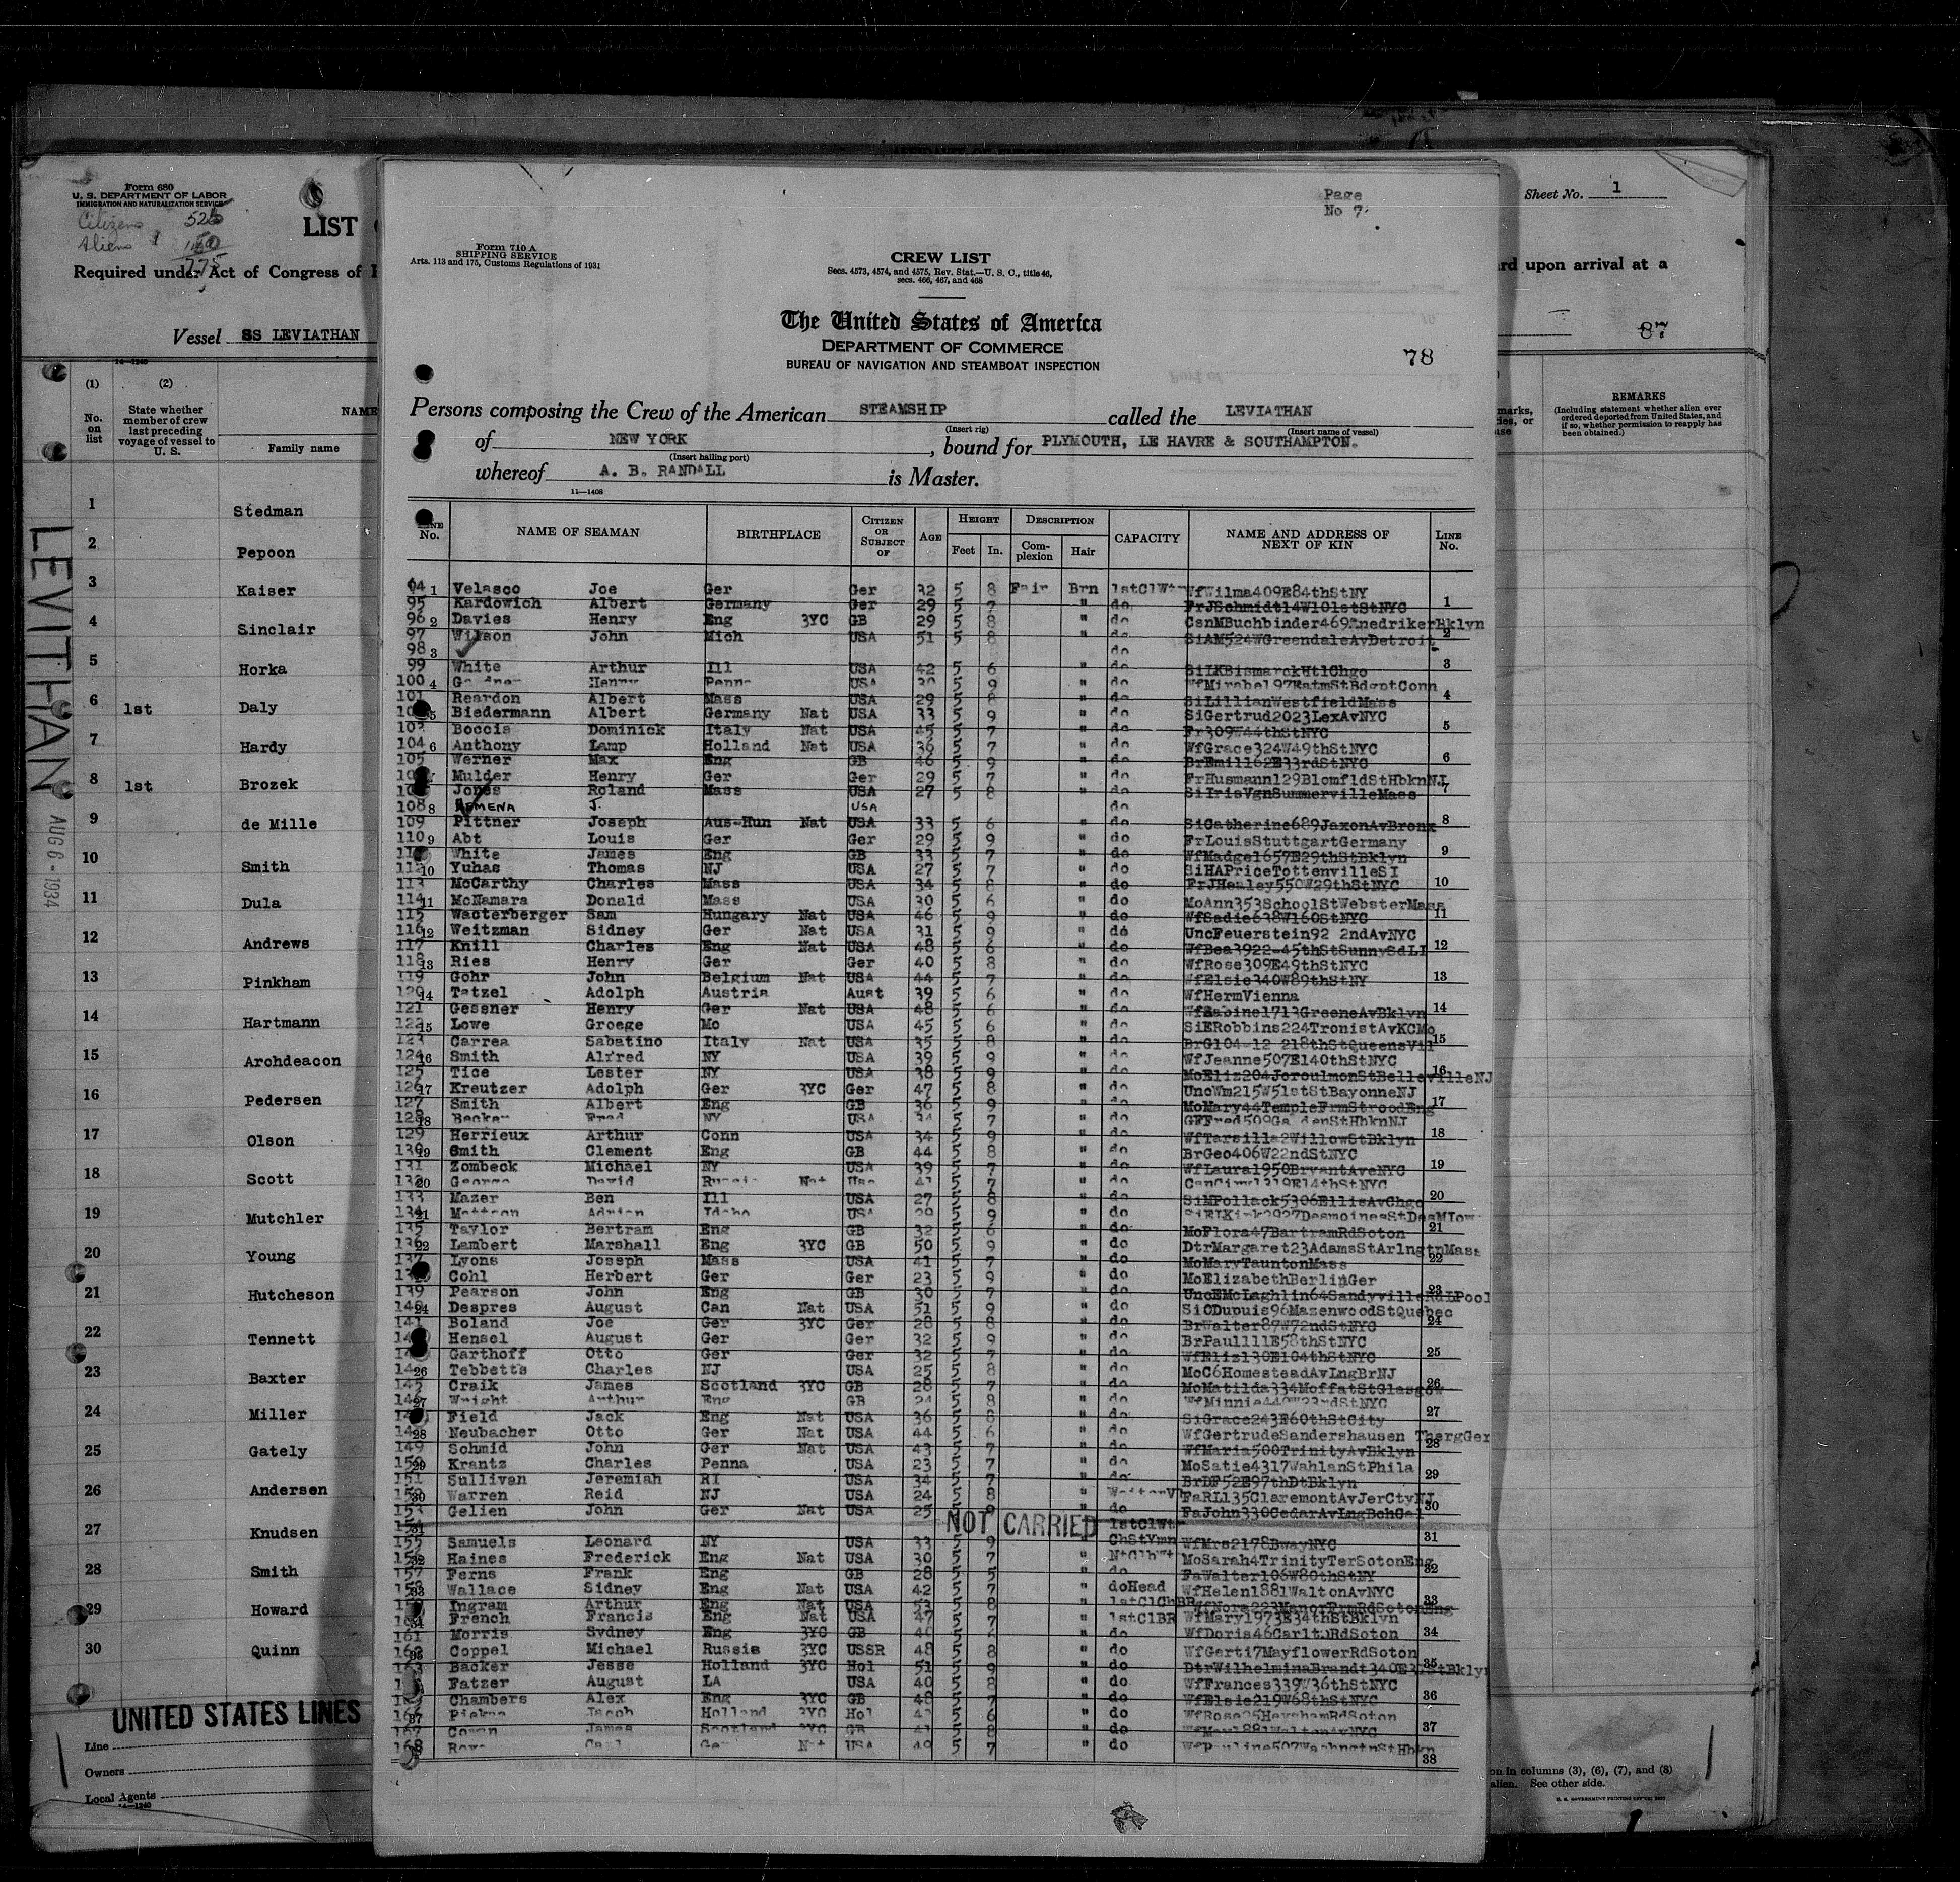 Form 680
U. S. DEPARTMENT OF LABOR
IMMIGRATION AND NATURALIZATION SERVICE
Citizens 525
Aliens
775
LIST
Required under Act of Congress of
Vessel SS LEVIATHAN
14—1240
(1) (2)
No. on list
State whether member of crew last preceding voyage of vessel to U. S.
NAME
Family name
1 Stedman
2 Pepoon
3 Kaiser
4 Sinclair
5 Horka
6 1st Daly
7 Hardy
8 1st Brozek
9 de Mille
10 Smith
11 Dula
12 Andrews
13 Pinkham
14 Hartmann
15 Archdeacon
16 Pedersen
17 Olson
18 Scott
19 Mutchler
20 Young
21 Hutcheson
22 Tennett
23 Baxter
24 Miller
25 Gately
26 Andersen
27 Knudsen
28 Smith
29 Howard
30 Quinn
LEVITHAN
AUG 6 - 1934
UNITED STATES LINES
Line
Owners
Local Agents
14—1240
Page
No 7
Form 710 A
SHIPPING SERVICE
Arts. 113 and 175, Customs Regulations of 1931
CREW LIST
Secs. 4573, 4574, and 4575, Rev. Stat.—U. S. C., title 46,
secs. 466, 467, and 468
The United States of America
DEPARTMENT OF COMMERCE
BUREAU OF NAVIGATION AND STEAMBOAT INSPECTION
78
Persons composing the Crew of the American STEAMSHIP called the LEVIATHAN
(Insert rig) (Insert name of vessel)
of NEW YORK, bound for PLYMOUTH, LE HAVRE & SOUTHAMPTON.
(Insert hailing port)
whereof A. B. RANDALL is Master.
11—1408
LINE No. NAME OF SEAMAN BIRTHPLACE CITIZEN OR SUBJECT OF AGE HEIGHT Feet In. DESCRIPTION Complexion Hair CAPACITY NAME AND ADDRESS OF NEXT OF KIN LINE No.
94 1 Velasco Joe Ger Ger 32 5 8 Fair Brn 1stClWtr WfWilma409E84thStNY
95 Kardowich Albert Germany Ger 29 5 7 " do FrJSchmidt14W101stStNYC 1
96 2 Davies Henry Eng 3YC GB 29 5 8 " do
97 Wilson John Mich USA 51 5 8 " do SiAM524WGreendaleAvDetroit 2
98 3 do
99 White Arthur Ill USA 42 5 6 " do SiLKBismarckHtlChgo 3
100 4 Henry Penna USA 30 5 9 " do
101 Reardon Albert Mass USA 29 5 8 " do SiLillianWestfieldMass 4
5 Biedermann Albert Germany Nat USA 33 5 9 " do SiGertrud2023LexAvNYC
Boccia Dominick Italy Nat USA 45 5 7 " do Fr309W44thStNYC 5
104 6 Anthony Lamp Holland Nat USA 36 5 7 " do WfGrace324W49thStNYC
105 Werner Max Eng GB 46 5 9 " do BrEmil162E33rdStNYC 6
Mulder Henry Ger Ger 29 5 7 " do FrHusmann129BlomfldStHbknNJ
Jones Roland Mass USA 27 5 8 " do SiIrisVgnSummervilleMass 7
108 8 J. USA do
109 Pittner Joseph Aus-Hun Nat USA 33 5 6 " do SiCatherine689JaxonAvBronx 8
110 9 Abt Louis Ger Ger 29 5 9 " do FrLouisStuttgartGermany
White James Eng GB 33 5 7 " do WfMadge1657E29thStBklyn 9
112 10 Yuhas Thomas NJ USA 27 5 7 " do SiHAPriceTottenvilleSI
113 McCarthy Charles Mass USA 34 5 8 " do FrJHealey550W29thStNYC 10
114 11 McNamara Donald Mass USA 30 5 6 " do MoAnn353SchoolStWebsterMass
115 Wacterberger Sam Hungary Nat USA 46 5 9 " do WfSadie638W160StNYC 11
116 12 Weitzman Sidney Ger Nat USA 31 5 9 " do UncFeuerstein92 2ndAvNYC
117 Knill Charles Eng Nat USA 48 5 6 " do WfBea3922-45thStSunnySdLI 12
118 13 Ries Henry Ger Ger 40 5 8 " do WfRose309E49thStNYC
119 Gohr John Belgium Nat USA 44 5 7 " do WfElsie340W89thStNY 13
120 14 Tatzel Adolph Austria Aust 39 5 6 " do WfHermVienna
121 Gessner Henry Ger Nat USA 48 5 6 " do WfSabine1713GreeneAvBklyn 14
122 15 Lowe Groege Mo USA 45 5 6 " do SiERobbins224TronistAvKCMo
123 Carrea Sabatino Italy Nat USA 35 5 8 " do BrG104-12 218thStQueensVil 15
124 16 Smith Alfred NY USA 39 5 9 " do WfJeanne507E140thStNYC
125 Tice Lester NY USA 38 5 9 " do MoEliz204JoroulmonStBellevilleNJ 16
126 17 Kreutzer Adolph Ger 3YC Ger 47 5 8 " do UncWm215W51stStBayonneNJ
127 Smith Albert Eng GB 36 5 9 " do MoMary44TempleFrmStroodEng 17
128 18 Becker Fred NY USA 34 5 7 " do
129 Herrieux Arthur Conn USA 34 5 9 " do WfTarsilla2WillowStBklyn 18
130 19 Smith Clement Eng GB 44 5 8 " do BrGeo406W22ndStNYC
131 Zombeck Michael NY USA 39 5 7 " do WfLaura1950BryantAveNYC 19
132 20 George David Russia Nat Usa 41 5 7 " do
133 Mazer Ben Ill USA 27 5 8 " do SiMPollack5306EllisAvChgo 20
134 21 Mattson Adrian Idaho USA 29 5 9 " do
135 Taylor Bertram Eng GB 32 5 6 " do MoFlora47BartramRdSoton 21
136 22 Lambert Marshall Eng 3YC GB 50 5 9 " do DtrMargaret23AdamsStArlngtnMass
137 Lyons Joseph Mass USA 41 5 7 " do MoMaryTauntonMass 22
Cohl Herbert Ger Ger 23 5 9 " do MoElizabethBerlinGer
139 Pearson John Eng GB 30 5 7 " do UncEMcLaghlin64SandyvilleRdLPool 23
140 24 Despres August Can Nat USA 51 5 9 " do SiCDupuis96MazenwoodStQuebec
141 Boland Joe Ger 3YC Ger 28 5 8 " do BrWalter87W72ndStNYC 24
Hensel August Ger Ger 32 5 9 " do BrPaul111E58thStNYC
Garthoff Otto Ger Ger 32 5 7 " do WfEliz130E104thStNYC 25
26 Tebbetts Charles NJ USA 25 5 8 " do MoC6HomesteadAvLngBrNJ
145 Craik James Scotland 3YC GB 28 5 7 " do MoMatilda334MoffatStGlasgow 26
27 Wright Arthur Eng GB 24 5 8 " do WfMinnie440W23rdStNYC
Field Jack Eng Nat USA 36 5 8 " do SiGrace243E60thStCity 27
28 Neubacher Otto Ger Nat USA 44 5 6 " do WfGertrudeSandershausen ThergGer
149 Schmid John Ger Nat USA 43 5 7 " do WfMaria500TrinityAvBklyn 28
150 29 Krantz Charles Penna USA 23 5 7 " do MoSatie4317WahlanStPhila
151 Sullivan Jeremiah RI USA 34 5 7 " do BrDF52E97thDtBklyn 29
152 30 Warren Reid NJ USA 24 5 8 " FaRL135ClaremontAvJerCtyNJ
153 Gelien John Ger Nat USA 25 5 9 " do FaJohn330CedarAvLngBchCal 30
154 31 NOT CARRIED 1stClWtr
155 Samuels Leonard NY USA 33 5 9 ChStYmn WfMrs2178BwayNYC 31
32 Haines Frederick Eng Nat USA 30 5 7 " MoSarah4TrinityTerSotonEng
157 Ferns Frank Eng GB 28 5 5 " do FaWalter106W80thStNY 32
33 Wallace Sidney Eng Nat USA 42 5 7 " doHead WfHelen1881WaltonAvNYC
Ingram Arthur Eng Nat USA 53 5 8 " 1stClChBR WfNora223ManorFrmRdSotonEng 33
34 French Francis Eng Nat USA 47 5 7 " 1stClBR WfMary1973E34thStBklyn
161 Morris Sydney Eng 3YC GB 40 5 6 " do WfDoris46CarltnRdSoton 34
35 Coppel Michael Russia 3YC USSR 48 5 8 " do WfGerti7MayflowerRdSoton
163 Backer Jesse Holland 3YC Hol 51 5 9 " do 35
Fatzer August LA USA 40 5 8 " do WfFrances339W36thStNYC
Chambers Alex Eng 3YC GB 48 5 7 " do WfElsie219W68thStNYC 36
37 Jacob Holland 3YC Hol 5 6 " do
167 Cowan James Scotland 3YC GB 41 5 8 " do WfMay1881WaltonAvNYC 37
168 Ger Nat USA 49 5 7 " do 38
Sheet No. 1
upon arrival at a
87
REMARKS
(Including statement whether alien ever ordered deported from United States, and if so, whether permission to reapply has been obtained.)
in columns (3), (6), (7), and (8)
alien. See other side.
U. S. GOVERNMENT PRINTING OFFICE